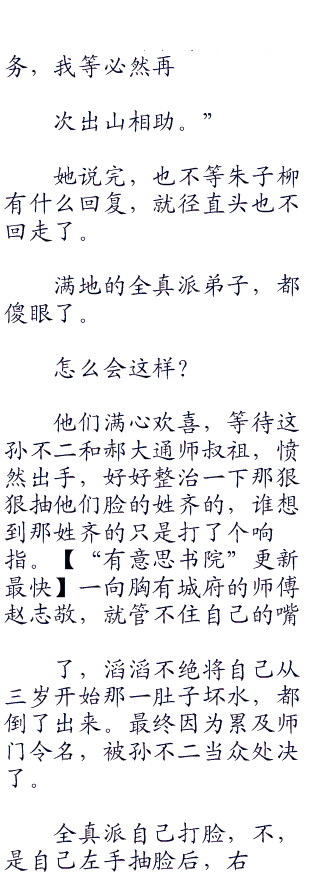 务，我等必然再
次出山相助。”
她说完，也不等朱子柳
有什么回复，就径直头也不
回走了。
满地的全真派弟子，都
傻眼了。
怎么会这样？
他们满心欢喜，等待这
孙不二和郝大通师叔祖，愤
然出手，好好整治一下那狠
狠抽他们脸的姓齐的，谁想
到那姓齐的只是打了个响
指。【“有意思书院”更新
最快】一向胸有城府的师傅
赵志敬，就管不住自己的嘴
了，滔滔不绝将自己从
三岁开始那一肚子坏水，都
倒了出来。最终因为累及师
门令名，被孙不二当众处决
了。
全真派自己打脸，不，
是自己左手抽脸后，右